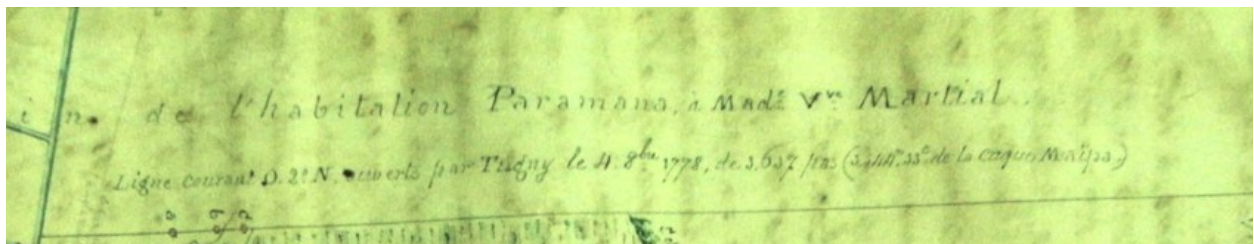 in. de l'habitation Paramana, à Made Vve Martial.
Ligne courant O. 2° N. ouverts par Tugny le 4. 8bre 1778, de 3,637 pas de la crique Maripa.)